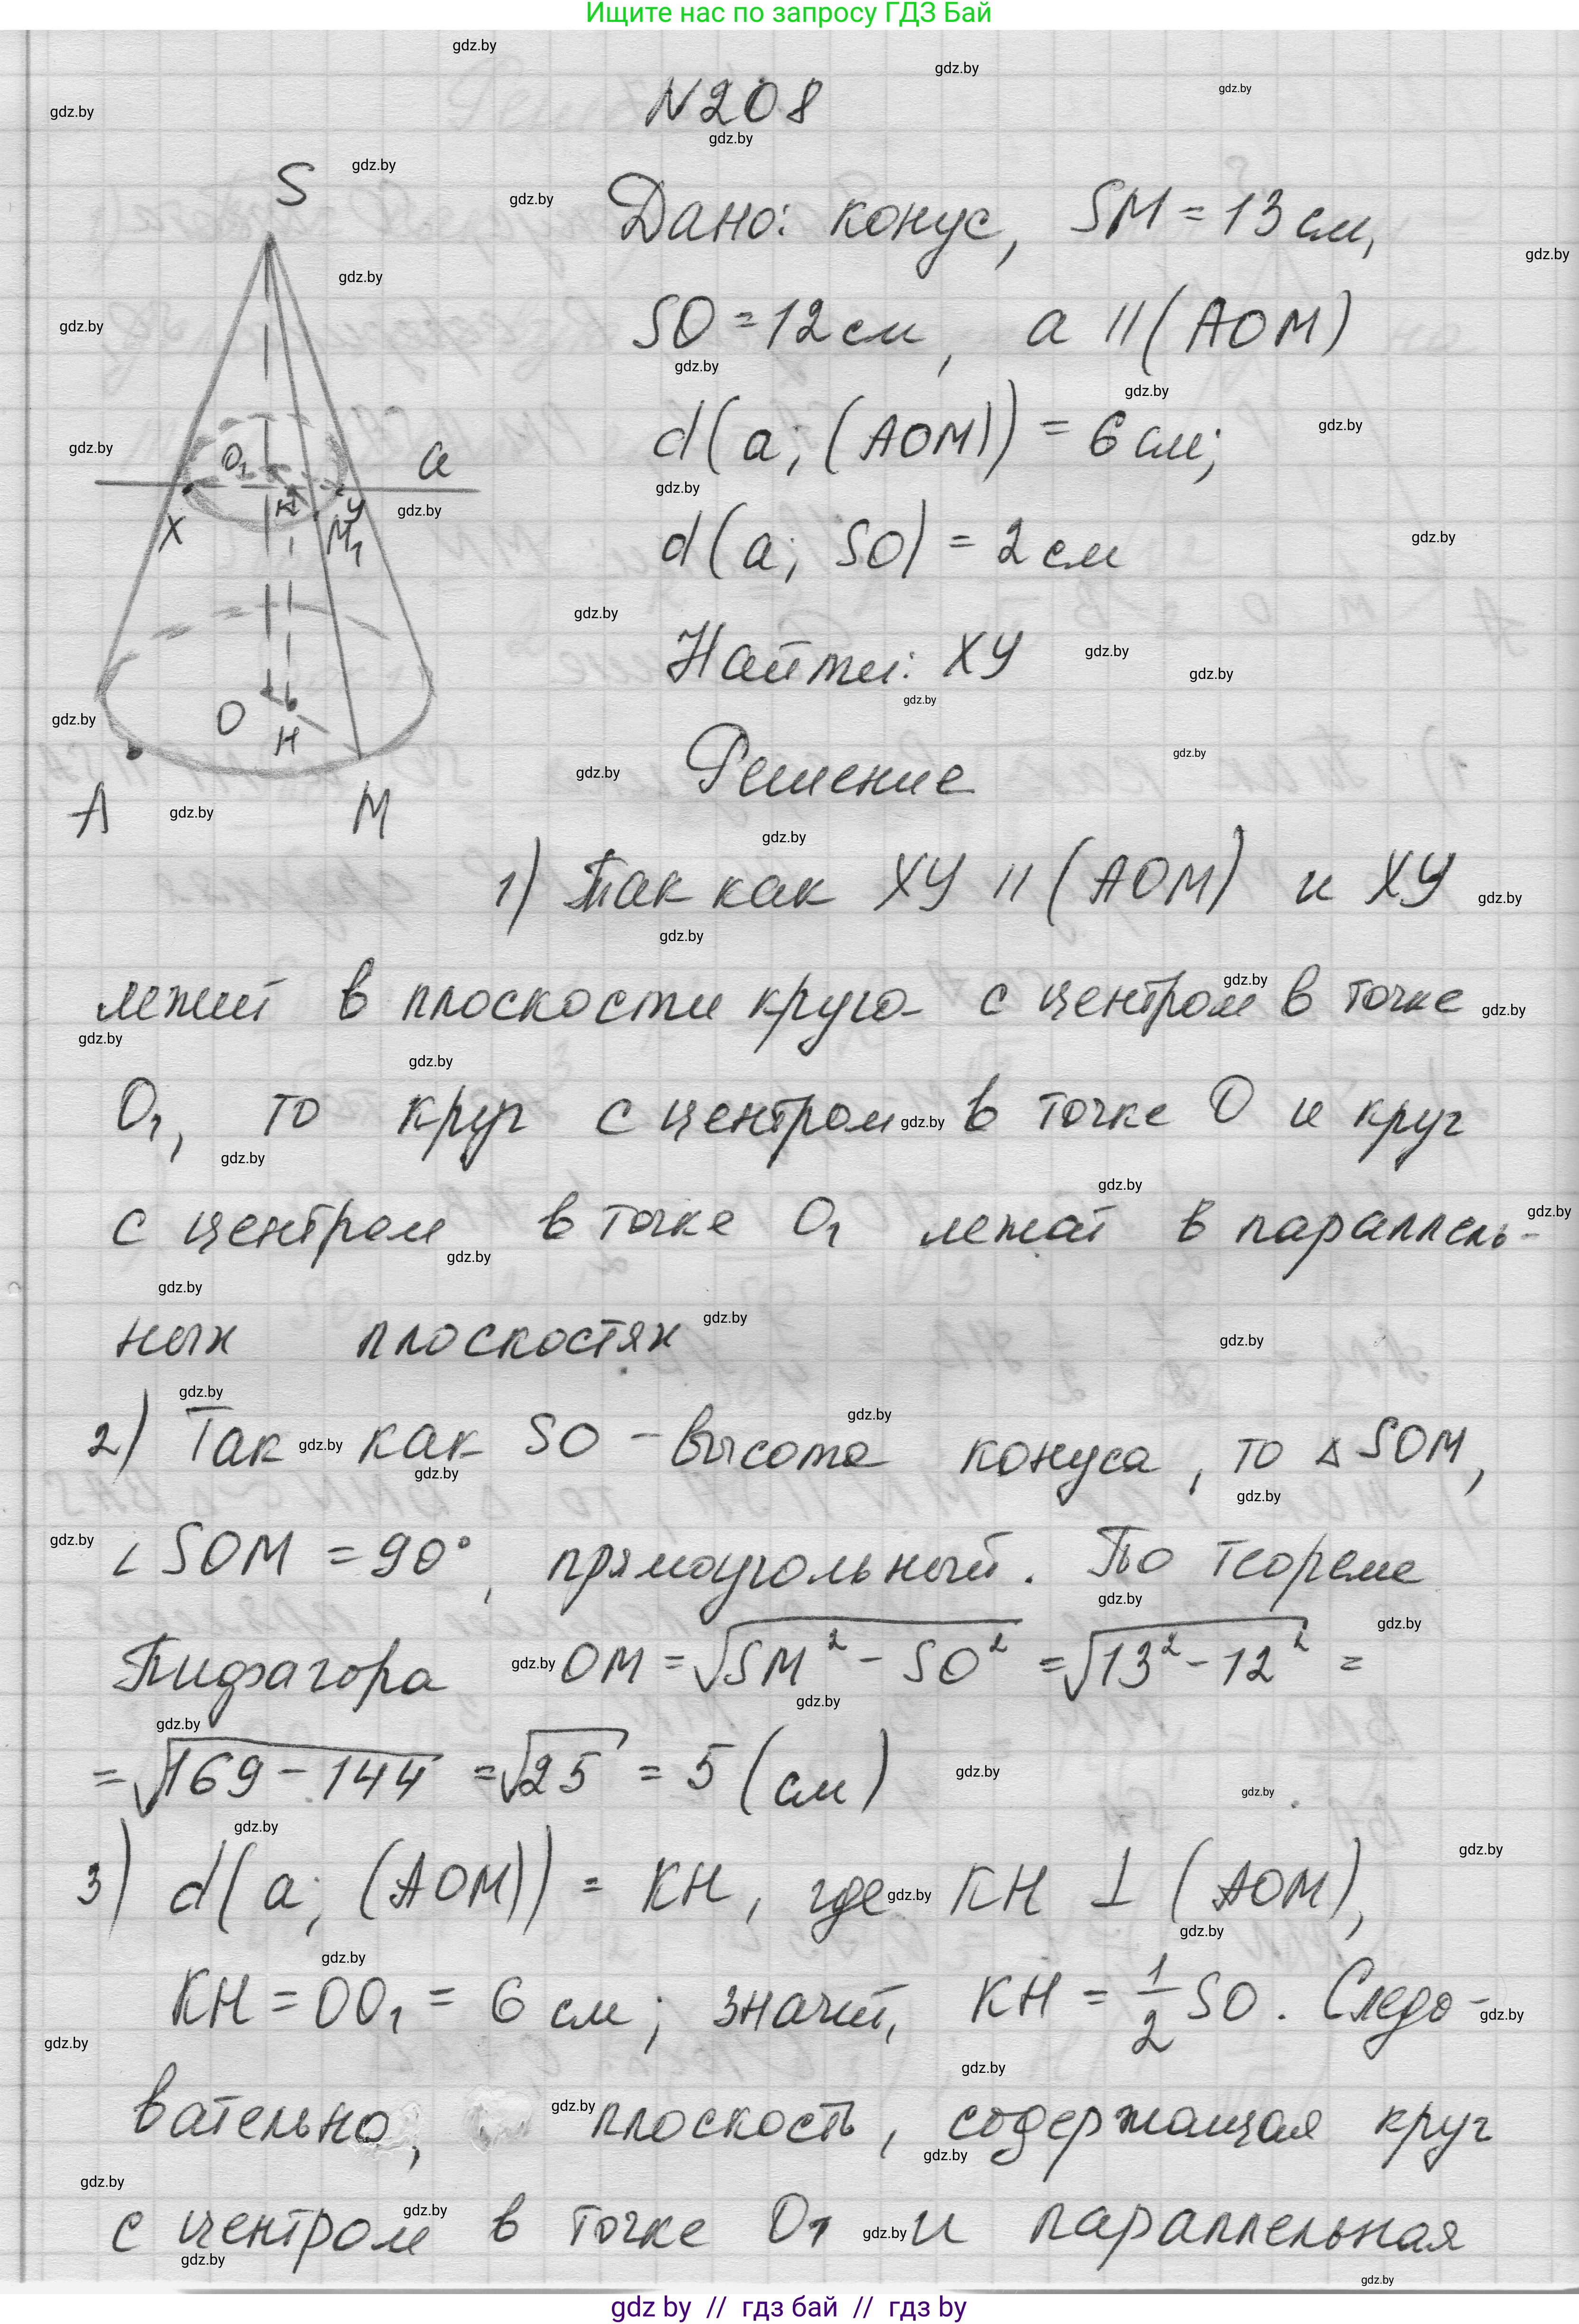 Ищите нас по запросу ГДЗ Бай
N208
S
Дано: конус, SM = 13 см,
SO = 12 см, a || (AOM)
d(a; (AOM)) = 6 см;
O₁ a
d(a; SO) = 2 см
X K У M₁
Найти: ХУ
O H
Решение
A M
1) Так как ХУ || (AOM) и ХУ
лежит в плоскости круга с центром в точке
O₁, то круг с центром в точке O и круг
с центром в точке O₁ лежат в параллель-
ных плоскостях
2) Так как SO - высота конуса, то △SOM,
∠SOM = 90°, прямоугольный. По теореме
Пифагора OM = √SM² - SO² = √13² - 12² =
= √169 - 144 = √25 = 5 (см)
3) d(a; (AOM)) = KH, где KH ⊥ (AOM),
KH = OO₁ = 6 см; значит, KH = 1/2 SO. Следо-
вательно, плоскость, содержащая круг
с центром в точке O₁ и параллельная
gdz by // гдз бай // гдз by